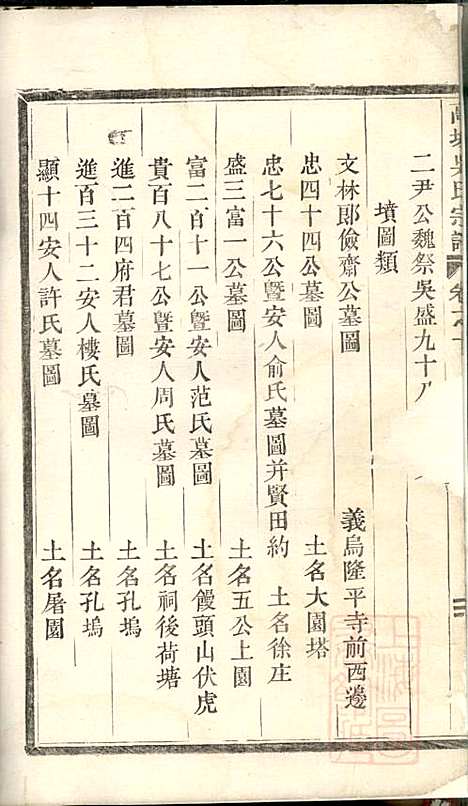 吳氏宗譜 卷之
二尹公魏祭吳盛九十八
墳圖類
文林郎儉齋公墓圖 義烏隆平寺前西邊
忠四十四公墓圖 土名大園塔
忠七十六公暨安人俞氏墓圖并賢田約 土名徐庄
盛三富一公墓圖 土名五公上園
富二百十一公暨安人范氏墓圖 土名饅頭山伏虎
貴百八十七公暨安人周氏墓圖 土名祠後荷塘
進二百四府君墓圖 土名孔塢
進百三十二安人樓氏墓圖 土名孔塢
顯十四安人許氏墓圖 土名屠園